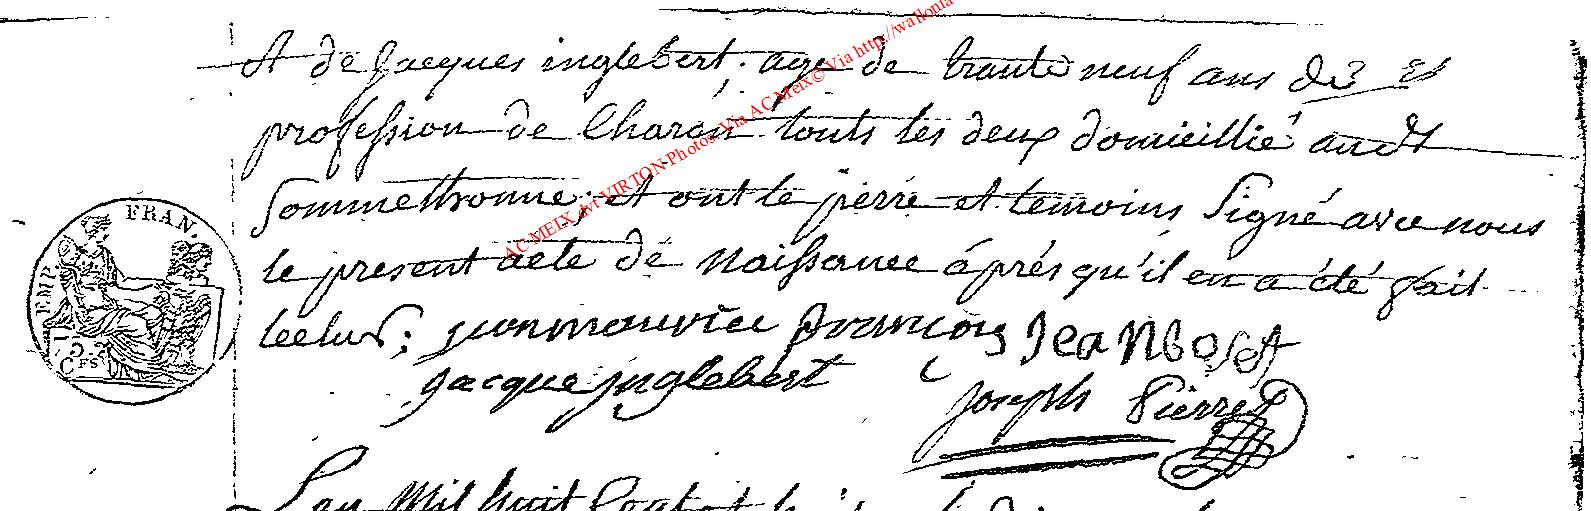 et de Jacques inglebert, age de trante neuf ans de
profession de Charon touts les deux domicillié audt
Sommethonne; et ont le perre et temoins Signé avec nous
le present acte de Naissance áprés qu'il en a été fait
lectur;
jean mauvice francois Jean Boset
jacque jnglebert
Joseph Pierret
L'an Mil huit Cent
EMP. FRAN.
75
CPS
AC MEIX dvt VIRTON-Photos Via AC Meix© Via http://wallonia